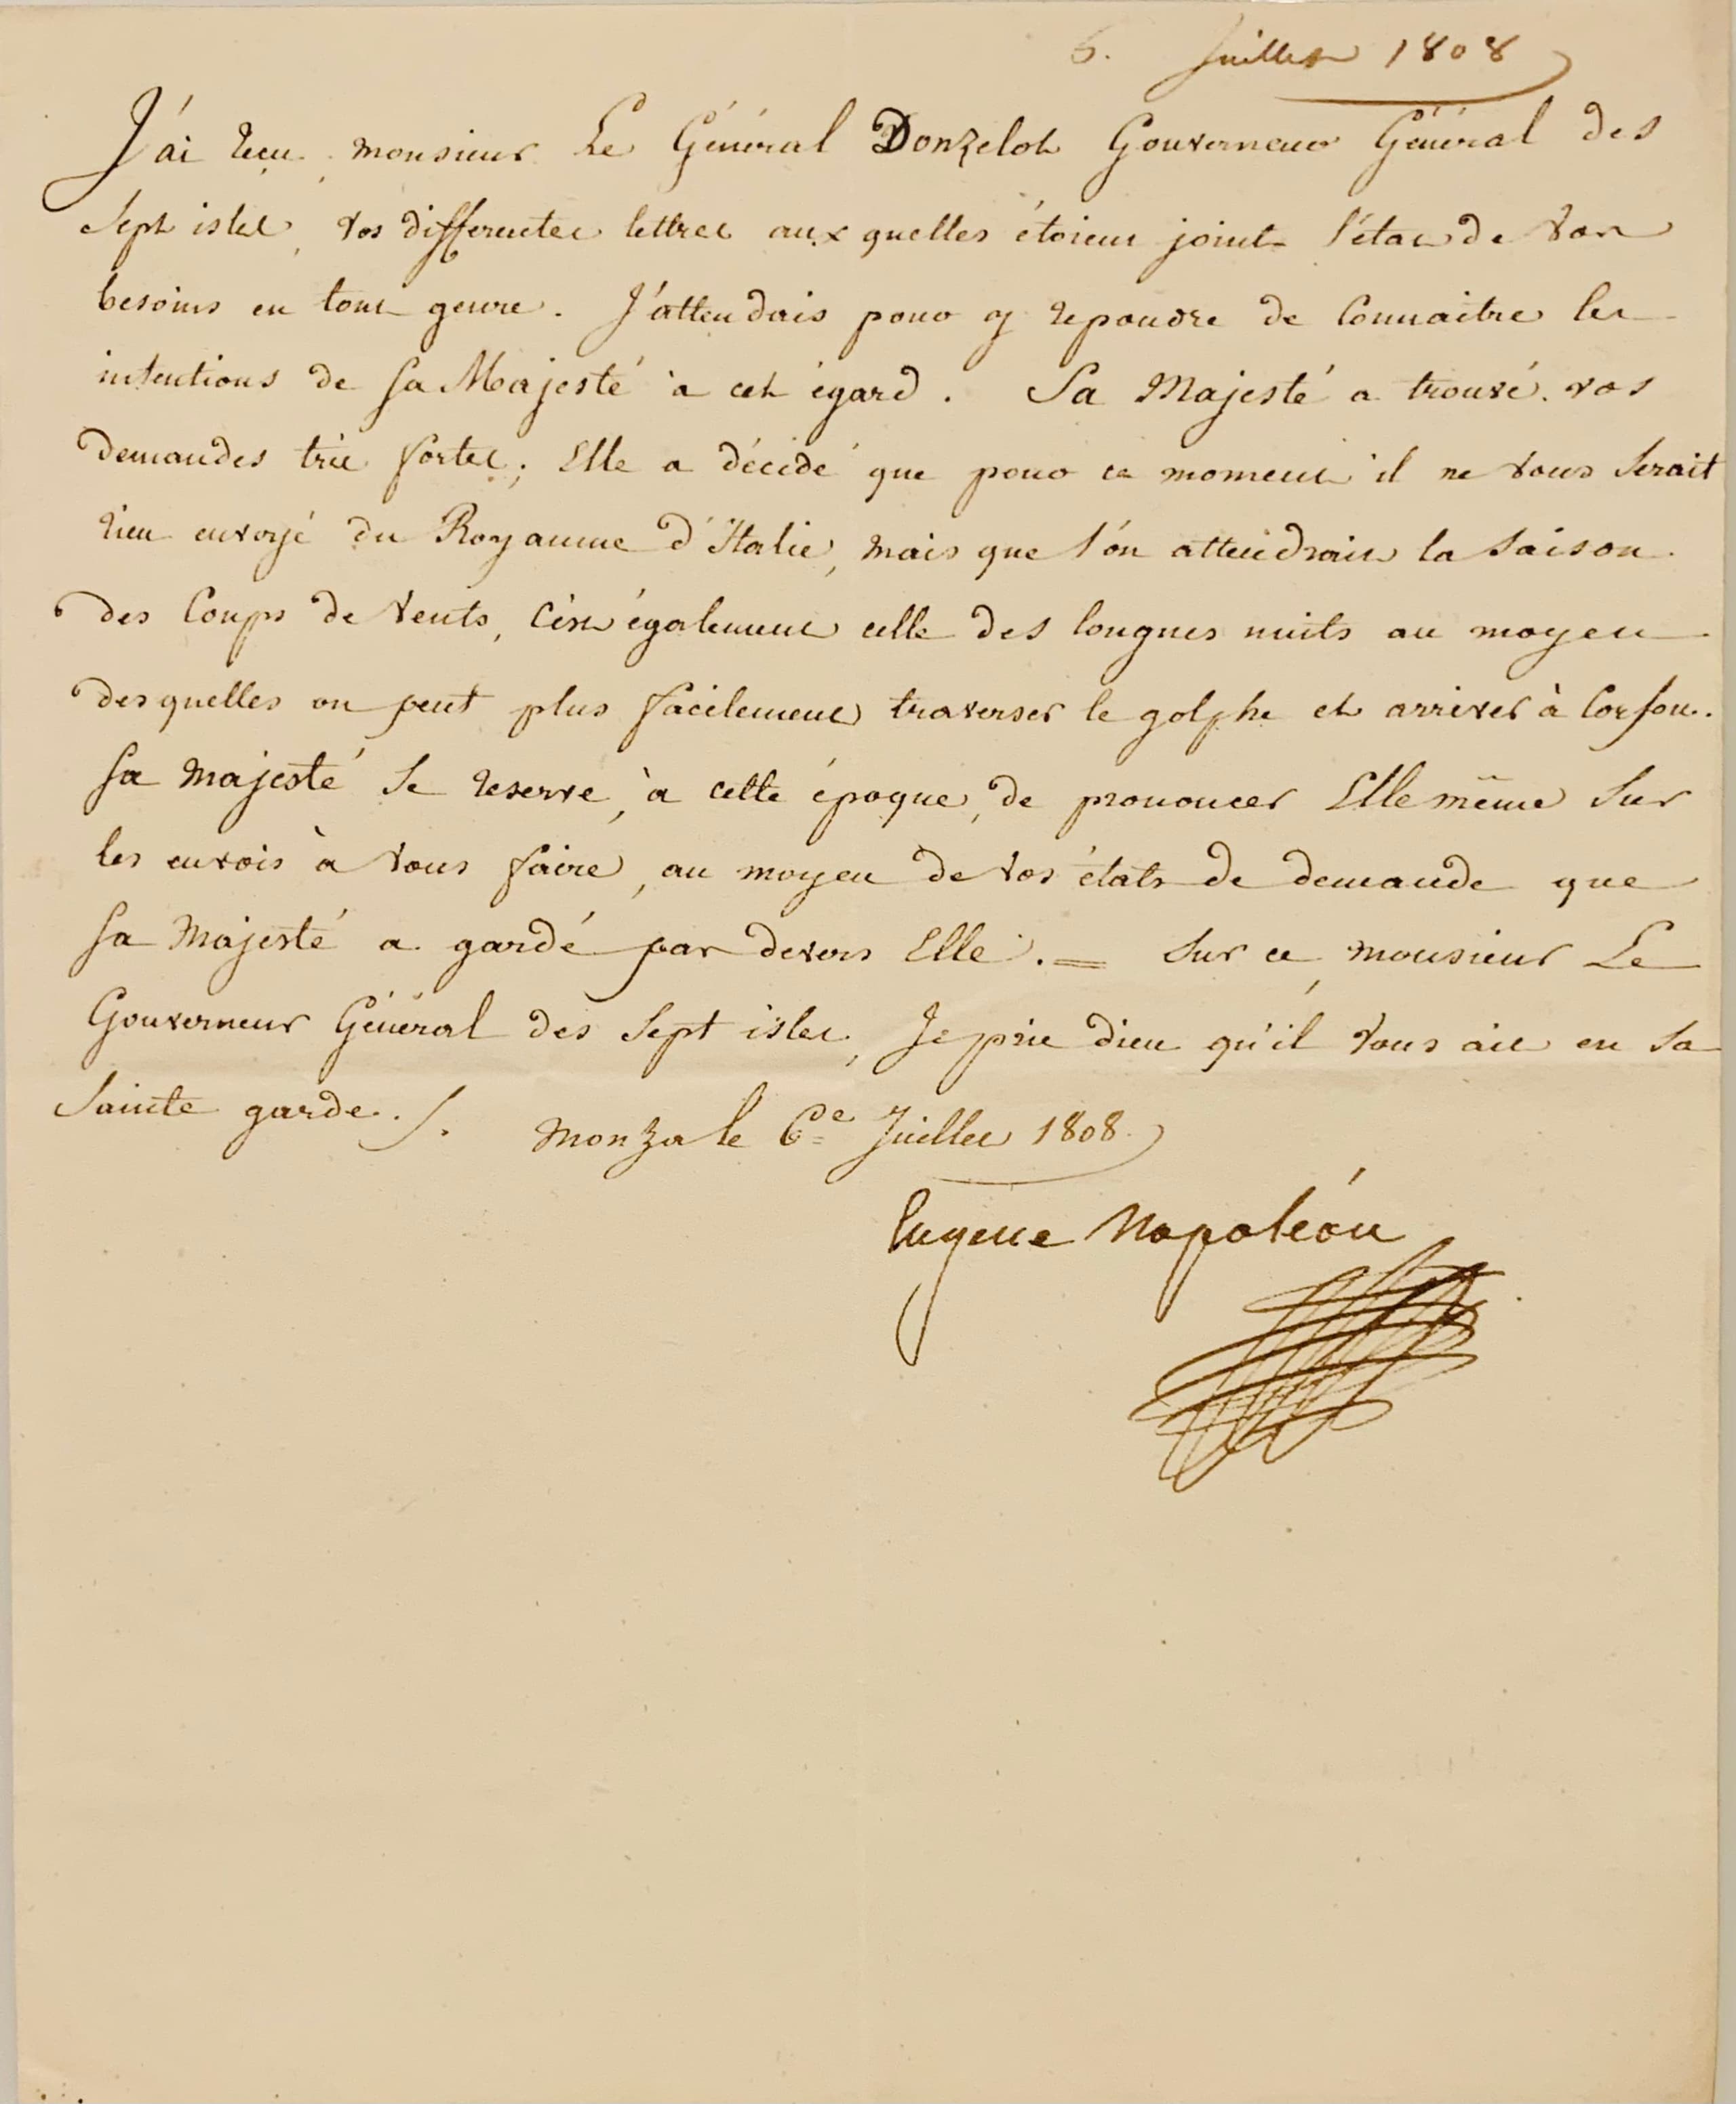 6. Juillet 1808
J'ai reçu, monsieur Le Général Donzelot Gouverneur Général des
Sept isles, vos differentes lettres aux quelles étoient joint l'état de vos
besoins en tout genre. J'attendais pour y repondre de Connaitre les
intentions de Sa Majesté à cet égard. Sa Majesté a trouvé vos
demandes très fortes; Elle a décidé que pour ce moment il ne vous serait
rien envoyé du Royaume d'Italie, mais que l'on attendrait la saison
des Coups de vents, c'est également celle des longues nuits au moyen
desquelles on peut plus facilement traverser le golphe et arriver à Corfou.
Sa Majesté se reserve, à cette époque, de prononcer Elle même sur
les envois à vous faire, au moyen de vos états de demande que
Sa Majesté a gardé par devers Elle. = Sur ce, monsieur Le
Gouverneur Général des Sept isles, Je prie dieu qu'il vous ait en sa
Sainte garde./.
Monza le 6e Juillet 1808.
Eugene Napoléon